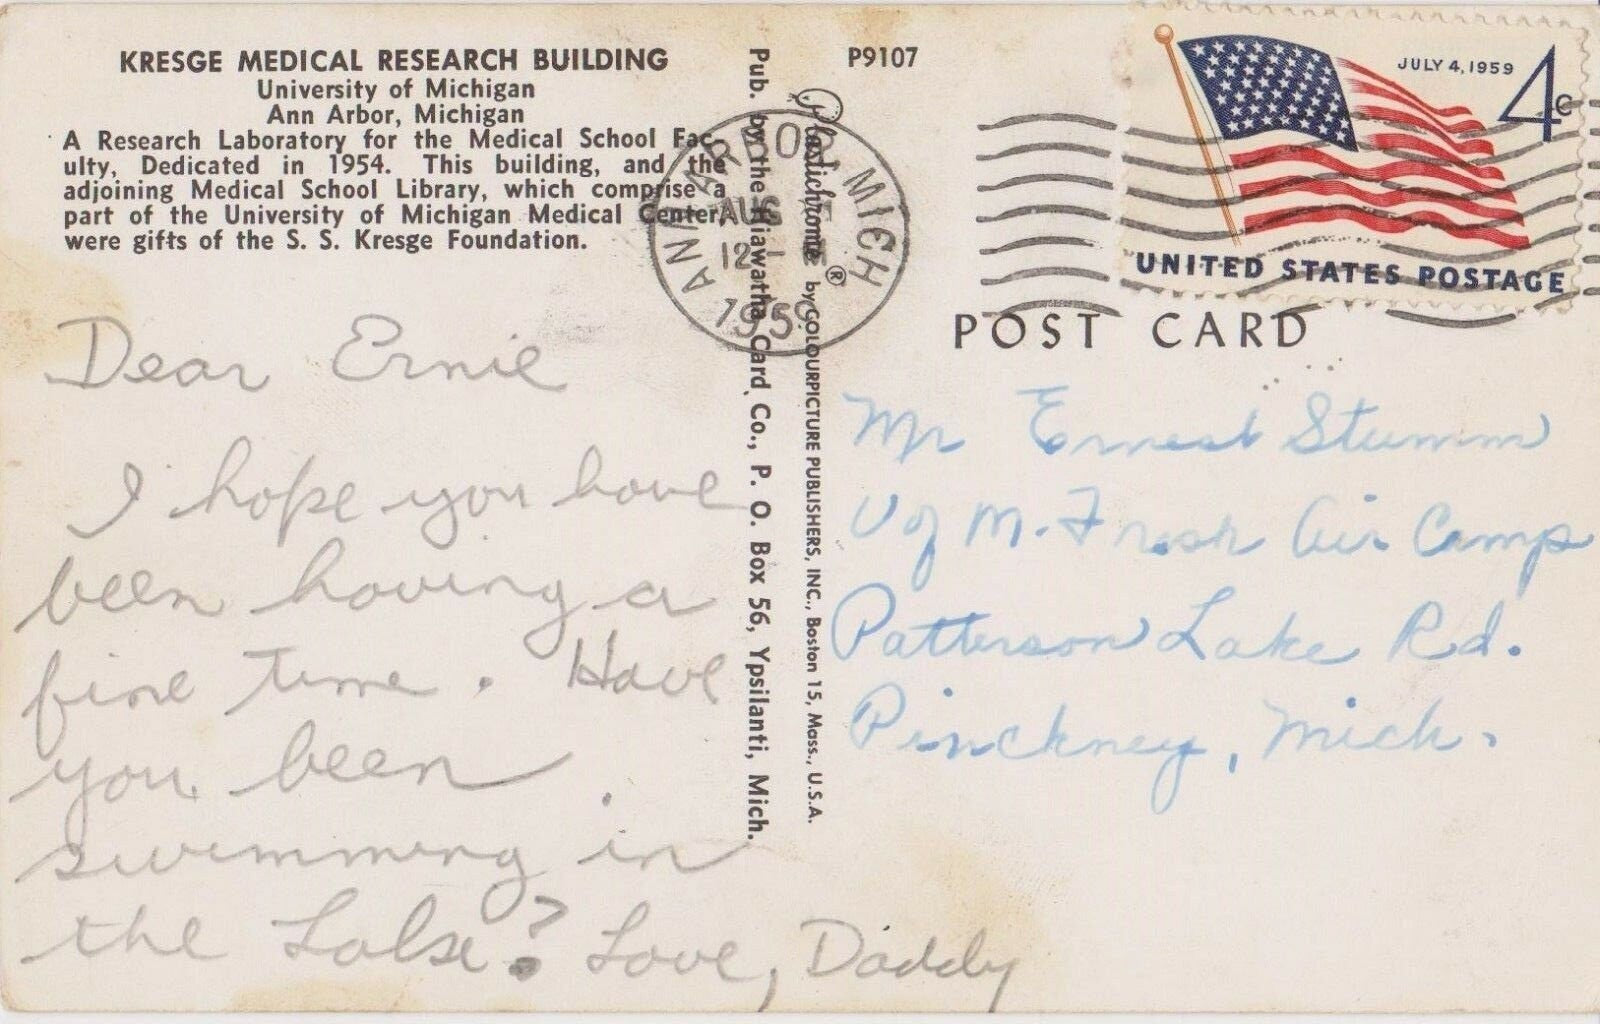 KRESGE MEDICAL RESEARCH BUILDING
University of Michigan
Ann Arbor, Michigan
A Research Laboratory for the Medical School Fac-
ulty, Dedicated in 1954. This building, and the
adjoining Medical School Library, which comprise a
part of the University of Michigan Medical Center,
were gifts of the S. S. Kresge Foundation.
Dear Ernie
I hope you have
been having a
fine time. Have
you been
swimming in
the Lake? Love, Daddy
Pub. by the Hiawatha Card Co., P. O. Box 56, Ypsilanti, Mich.
Plastichrome ® by COLOURPICTURE PUBLISHERS, INC., Boston 15, Mass., U.S.A.
P9107
ANN ARBOR MICH
AUG
1959
JULY 4, 1959
4c
UNITED STATES POSTAGE
POST CARD
Mr Ernest Stumm
U of M. Fresh Air Camp
Patterson Lake Rd.
Pinckney, Mich.